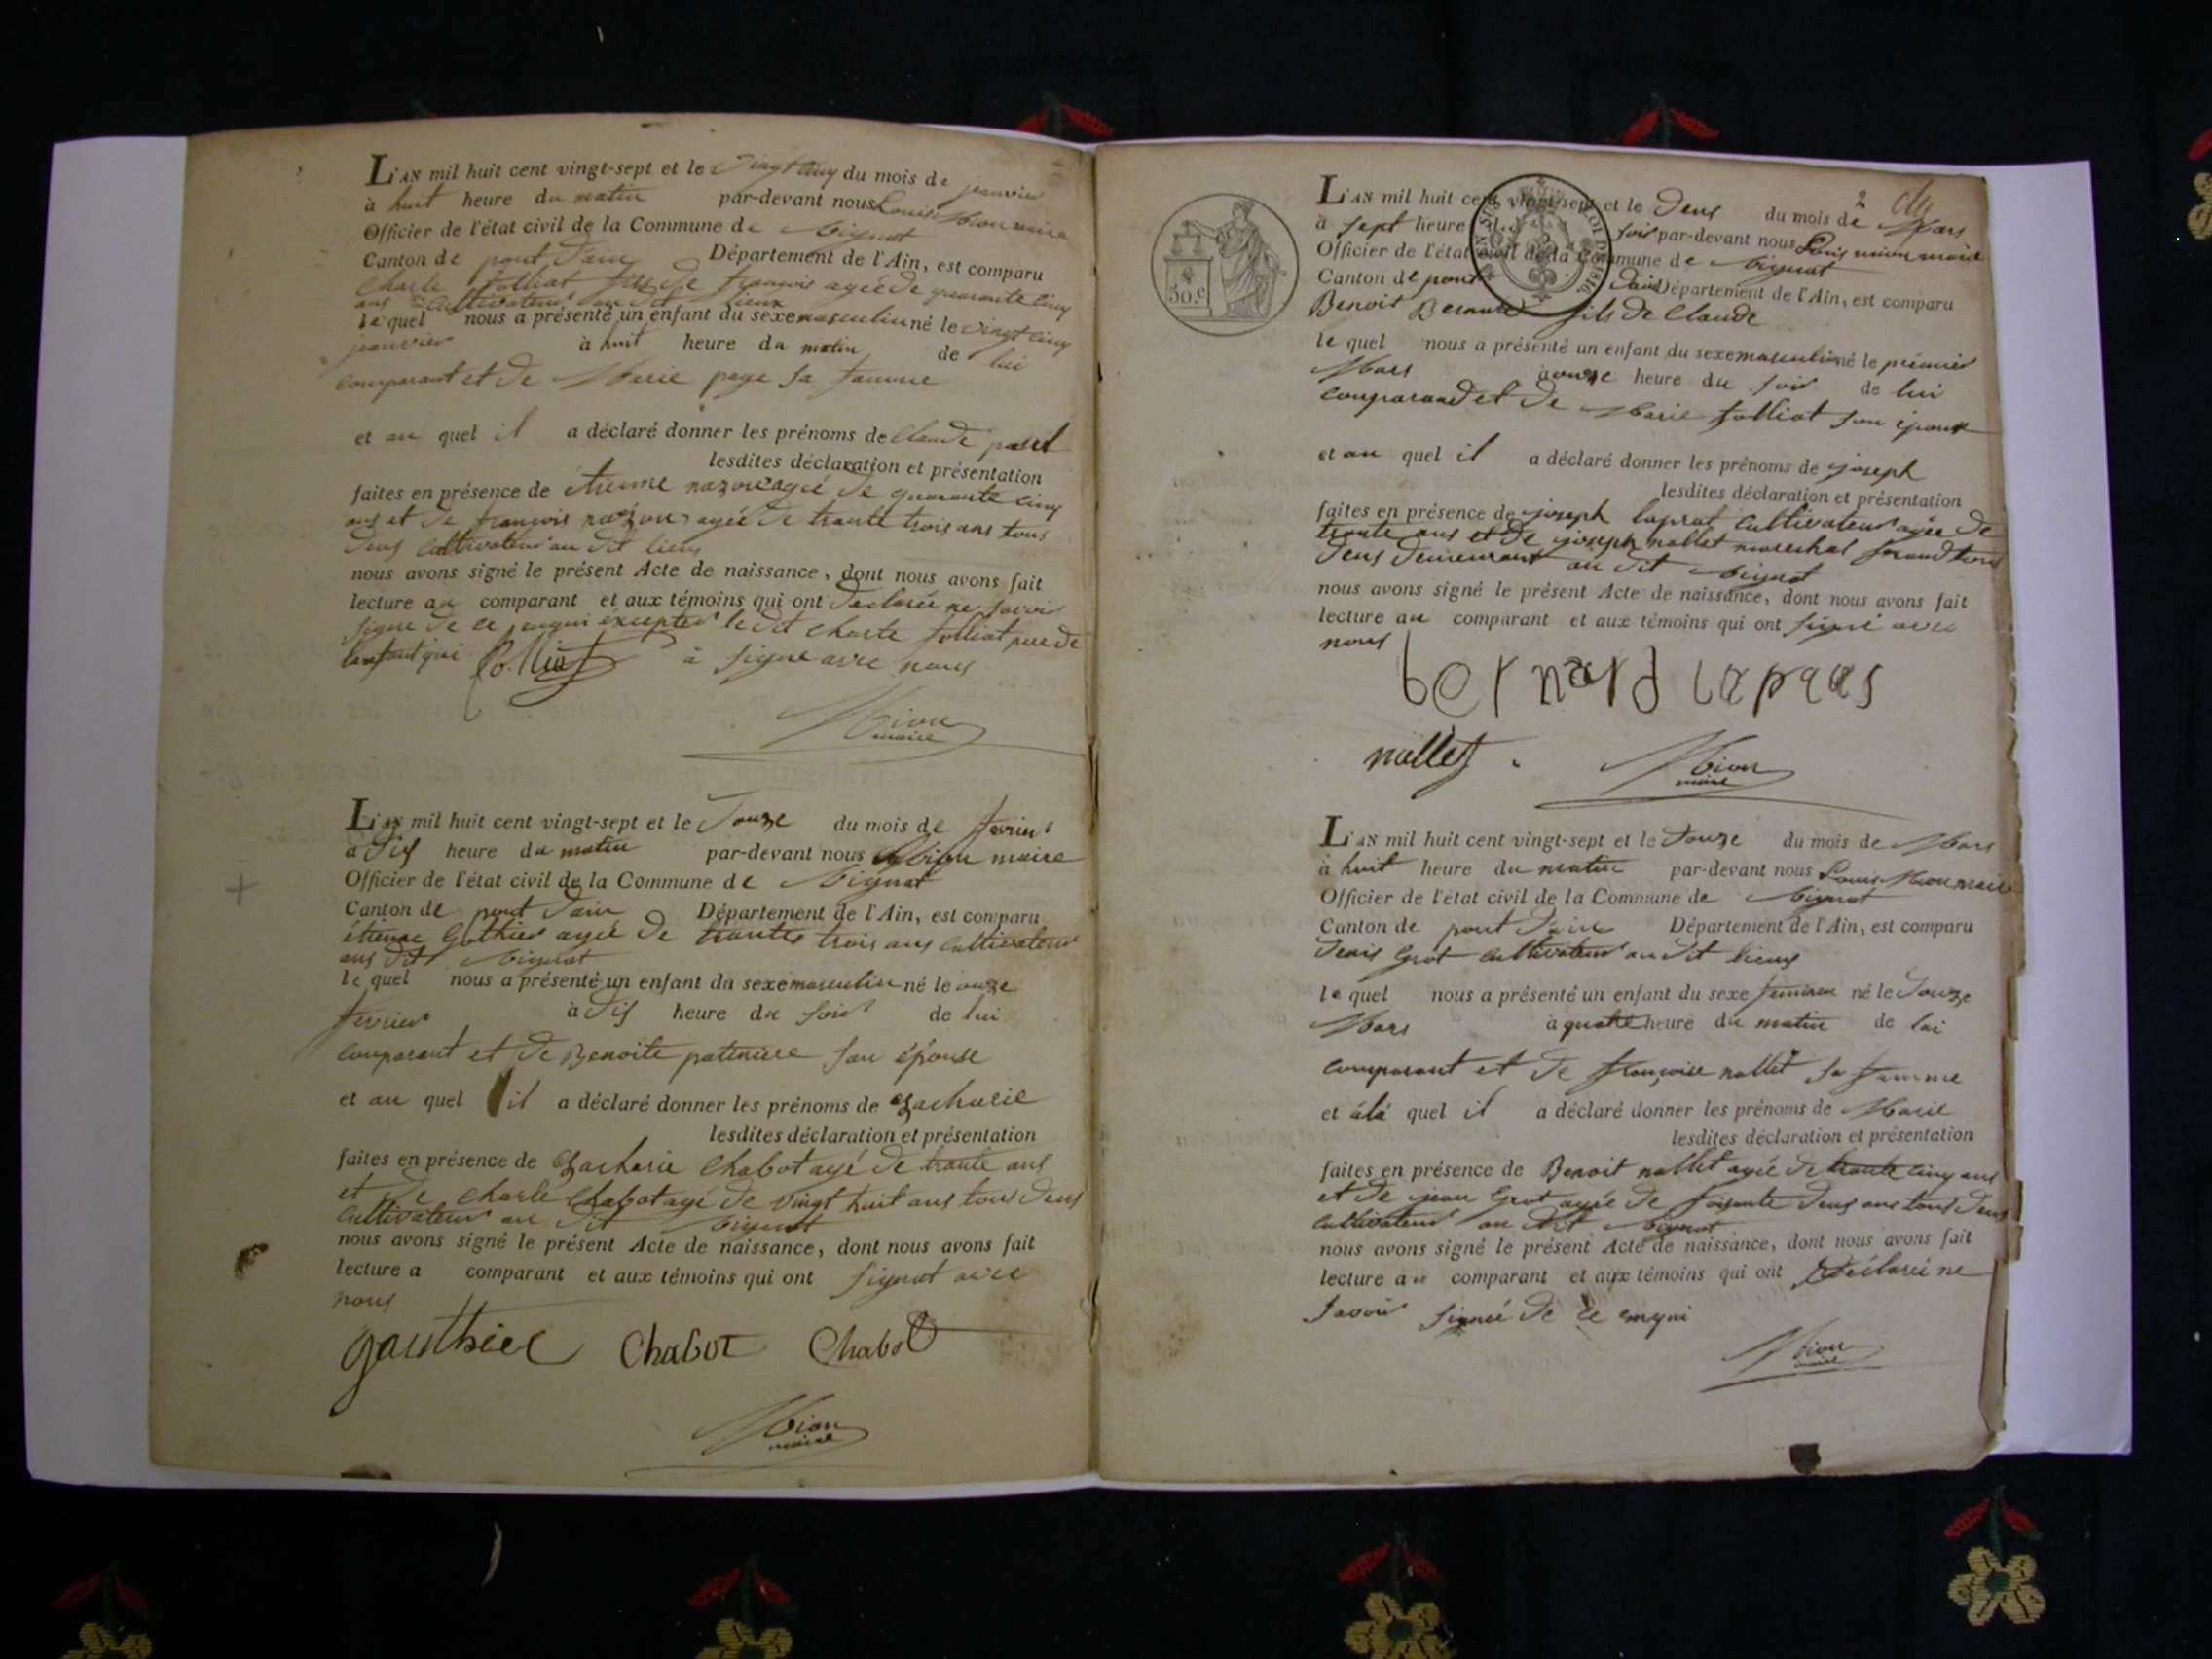 L'AN mil huit cent vingt-sept et le vingt cinq du mois de jeanvier
à huit heure du matin par-devant nous Louis Mion maire
Officier de l'état civil de la Commune de
Canton de pont Dain Département de l'Ain, est comparu
Charle folliat fils de françois agée de quarante cinq
ans cultivateur au dit lieux
le quel nous a présenté un enfant du sexe masculin né le vingt cinq
jeanvier à huit heure du matin de lui
comparant et de Marie page sa famme
et au quel il a déclaré donner les prénoms de Claude
lesdites déclaration et présentation
faites en présence de étienne agée de quarante cinq
ans et de françois agée de trante trois ans tous
deus cultivateur au dit lieux
nous avons signé le présent Acte de naissance, dont nous avons fait
lecture au comparant et aux témoins qui ont declarée ne savoir
signe de ce enquis excepter le dit charle folliat pere de
lanfant qui folliat à signe avec nous
Mion
maire
L'AN mil huit cent vingt-sept et le Douze du mois de fevrier
à Dix heure du matin par-devant nous Mion maire
Officier de l'état civil de la Commune de
Canton de pont Dain Département de l'Ain, est comparu
étienne Gothier agée de trante trois ans cultivateur
au dit
le quel nous a présenté un enfant du sexe masculin né le onze
fevrier à Dix heure du soir de lui
comparant et de Benoite son épouse
et au quel il a déclaré donner les prénoms de Zacharie
lesdites déclaration et présentation
faites en présence de Zacharie Chabot agé de trante ans
et de Charle Chabot agé de vingt huit ans tous deus
cultivateur au dit
nous avons signé le présent Acte de naissance, dont nous avons fait
lecture a comparant et aux témoins qui ont signot avec
nous
gauthier Chabot Chabot
Mion
maire
2
50.c
LOI DE 1816
L'AN mil huit cent vingt-sept et le Deus du mois de Mars
à sept heure soir par-devant nous Louis mion maire
Officier de l'état civil de la Commune de
Canton de pont Dain Département de l'Ain, est comparu
Benoit Bernard fils de Claude
le quel nous a présenté un enfant du sexe masculin né le premier
Mars à onze heure du soir de lui
comparand et de Marie folliat son épouse
et au quel il a déclaré donner les prénoms de joseph
lesdites déclaration et présentation
faites en présence de joseph laprat cultivateur agée de
trante ans et de joseph nallet marechal tous
deus demeurant au dit
nous avons signé le présent Acte de naissance, dont nous avons fait
lecture au comparant et aux témoins qui ont signé avec
nous
bernard
nallet
Mion
maire
L'AN mil huit cent vingt-sept et le Douze du mois de Mars
à huit heure du matin par-devant nous Louis Mion maire
Officier de l'état civil de la Commune de
Canton de pont Dain Département de l'Ain, est comparu
Denis Grot cultivateur au dit lieux
le quel nous a présenté un enfant du sexe feminin né le Douze
Mars à quatre heure du matin de lui
comparant et de françoise nallet sa famme
et à la quel il a déclaré donner les prénoms de Marie
lesdites déclaration et présentation
faites en présence de Benoit nallet agée de trante cinq ans
et de jean Grot agée de soisante deus ans tous deus
cultivateur au dit
nous avons signé le présent Acte de naissance, dont nous avons fait
lecture au comparant et aux témoins qui ont déclareé ne
savoir signeé de ce enqui
Mion
maire